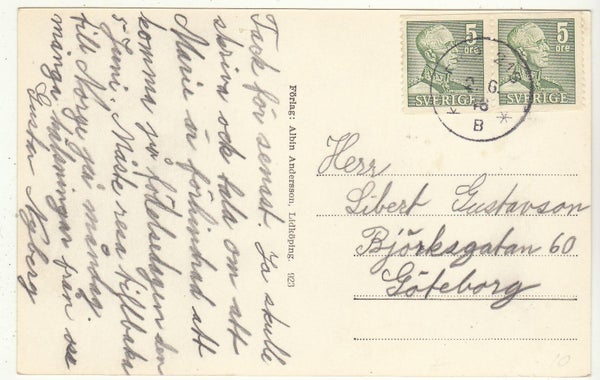 Tack för senast. Ja skulle
skriva och tala om att
Marie är förhindrad att
komma på födelsedagen den
5 Juni. Måste resa tillbaka
till Norge på måndag.
många hälsningar från oss
Gustav Nyberg
Förlag: Albin Andersson, Lidköping. 923
5
öre
SVERIGE
5
öre
SVERIGE
B
Herr
Libert Gustavson
Björksgatan 60
Göteborg
10